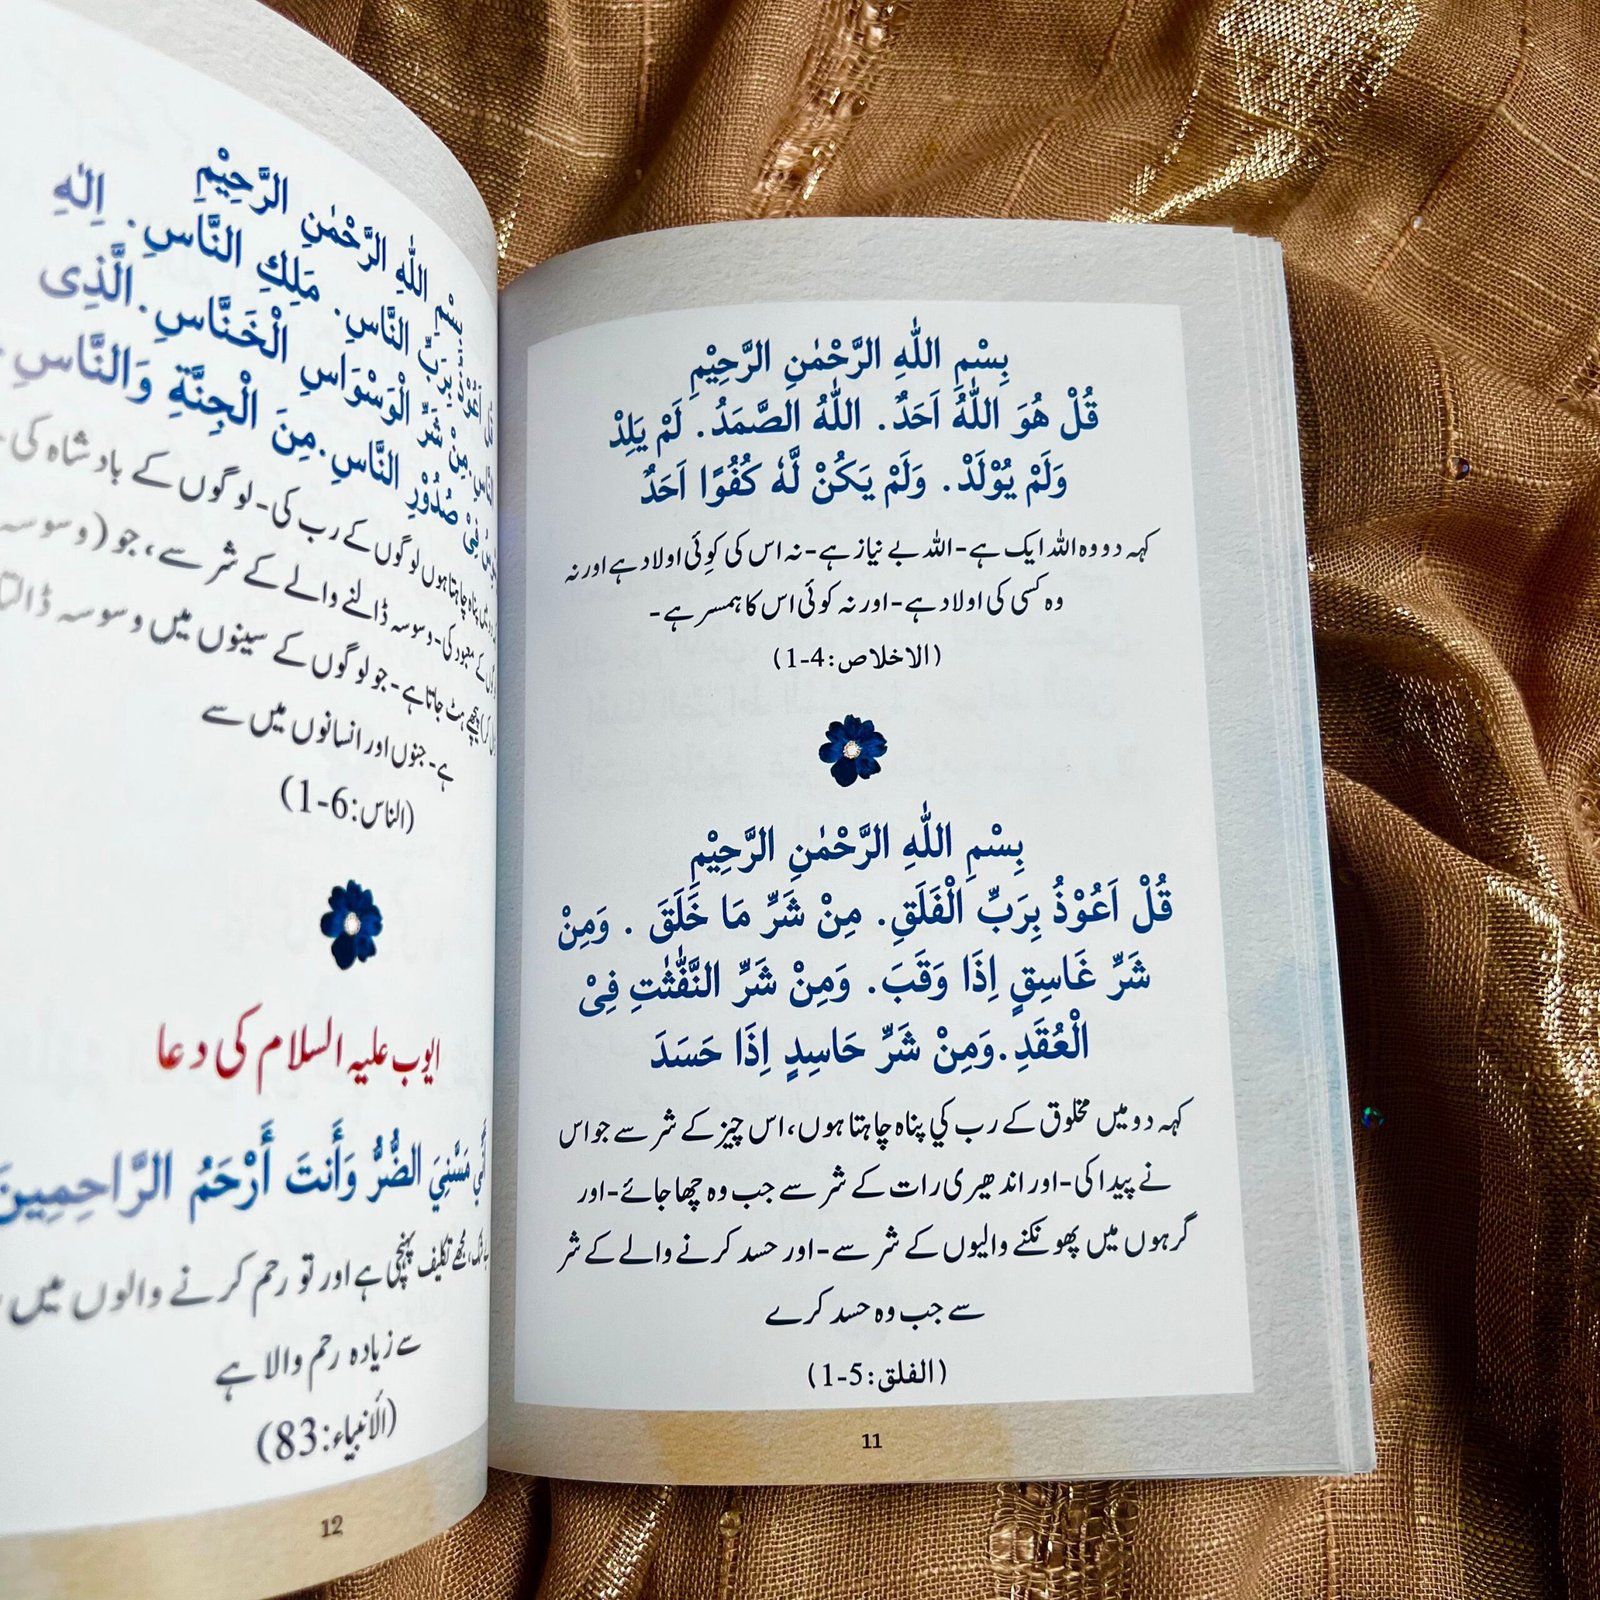 بِسْمِ اللّٰهِ الرَّحْمٰنِ الرَّحِيْمِ
قُلْ هُوَ اللّٰهُ اَحَدٌ. اللّٰهُ الصَّمَدُ. لَمْ يَلِدْ
وَلَمْ يُوْلَدْ. وَلَمْ يَكُنْ لَّهٗ كُفُوًا اَحَدٌ
کہہ دو وہ اللہ ایک ہے-اللہ بے نیاز ہے-نہ اس کی کوئی اولاد ہے اور نہ
وہ کسی کی اولاد ہے-اور نہ کوئی اس کا ہمسر ہے-
(الاخلاص:4-1)
بِسْمِ اللّٰهِ الرَّحْمٰنِ الرَّحِيْمِ
قُلْ اَعُوْذُ بِرَبِّ الْفَلَقِ. مِنْ شَرِّ مَا خَلَقَ . وَمِنْ
شَرِّ غَاسِقٍ اِذَا وَقَبَ. وَمِنْ شَرِّ النَّفّٰثٰتِ فِىْ
الْعُقَدِ.وَمِنْ شَرِّ حَاسِدٍ اِذَا حَسَدَ
کہہ دو میں مخلوق کے رب کي پناہ چاہتا ہوں،اس چیز کے شر سے جو اس
نے پیدا کی-اور اندھیری رات کے شر سے جب وہ چھا جائے-اور
گرہوں میں پھونکنے والیوں کے شر سے-اور حسد کرنے والے کے شر
سے جب وہ حسد کرے
(الفلق:5-1)
11
بِسْمِ اللّٰهِ الرَّحْمٰنِ الرَّحِيْمِ
قُلْ اَعُوْذُ بِرَبِّ النَّاسِ. مَلِكِ النَّاسِ. اِلٰهِ
النَّاسِ.مِنْ شَرِّ الْوَسْوَاسِ الْخَنَّاسِ.الَّذِى
فِىْ صُدُوْرِ النَّاسِ.مِنَ الْجِنَّةِ وَالنَّاسِ.
پناہ چاہتا ہوں لوگوں کے رب کی-لوگوں کے بادشاہ کی-
کے معبود کی-وسوسہ ڈالنے والے کے شر سے، جو (وسوسہ
پیچھے ہٹ جاتا ہے-جو لوگوں کے سینوں میں وسوسہ ڈالتا
ہے-جنوں اور انسانوں میں سے
(الناس:6-1)
ایوب علیہ السلام کی دعا
مَسَّنِيَ الضُّرُّ وَأَنتَ أَرْحَمُ الرَّاحِمِينَ
مجھے تکلیف پہنچی ہے اور تو رحم کرنے والوں میں
سے زیادہ رحم والا ہے
(الَانبیاء:83)
12